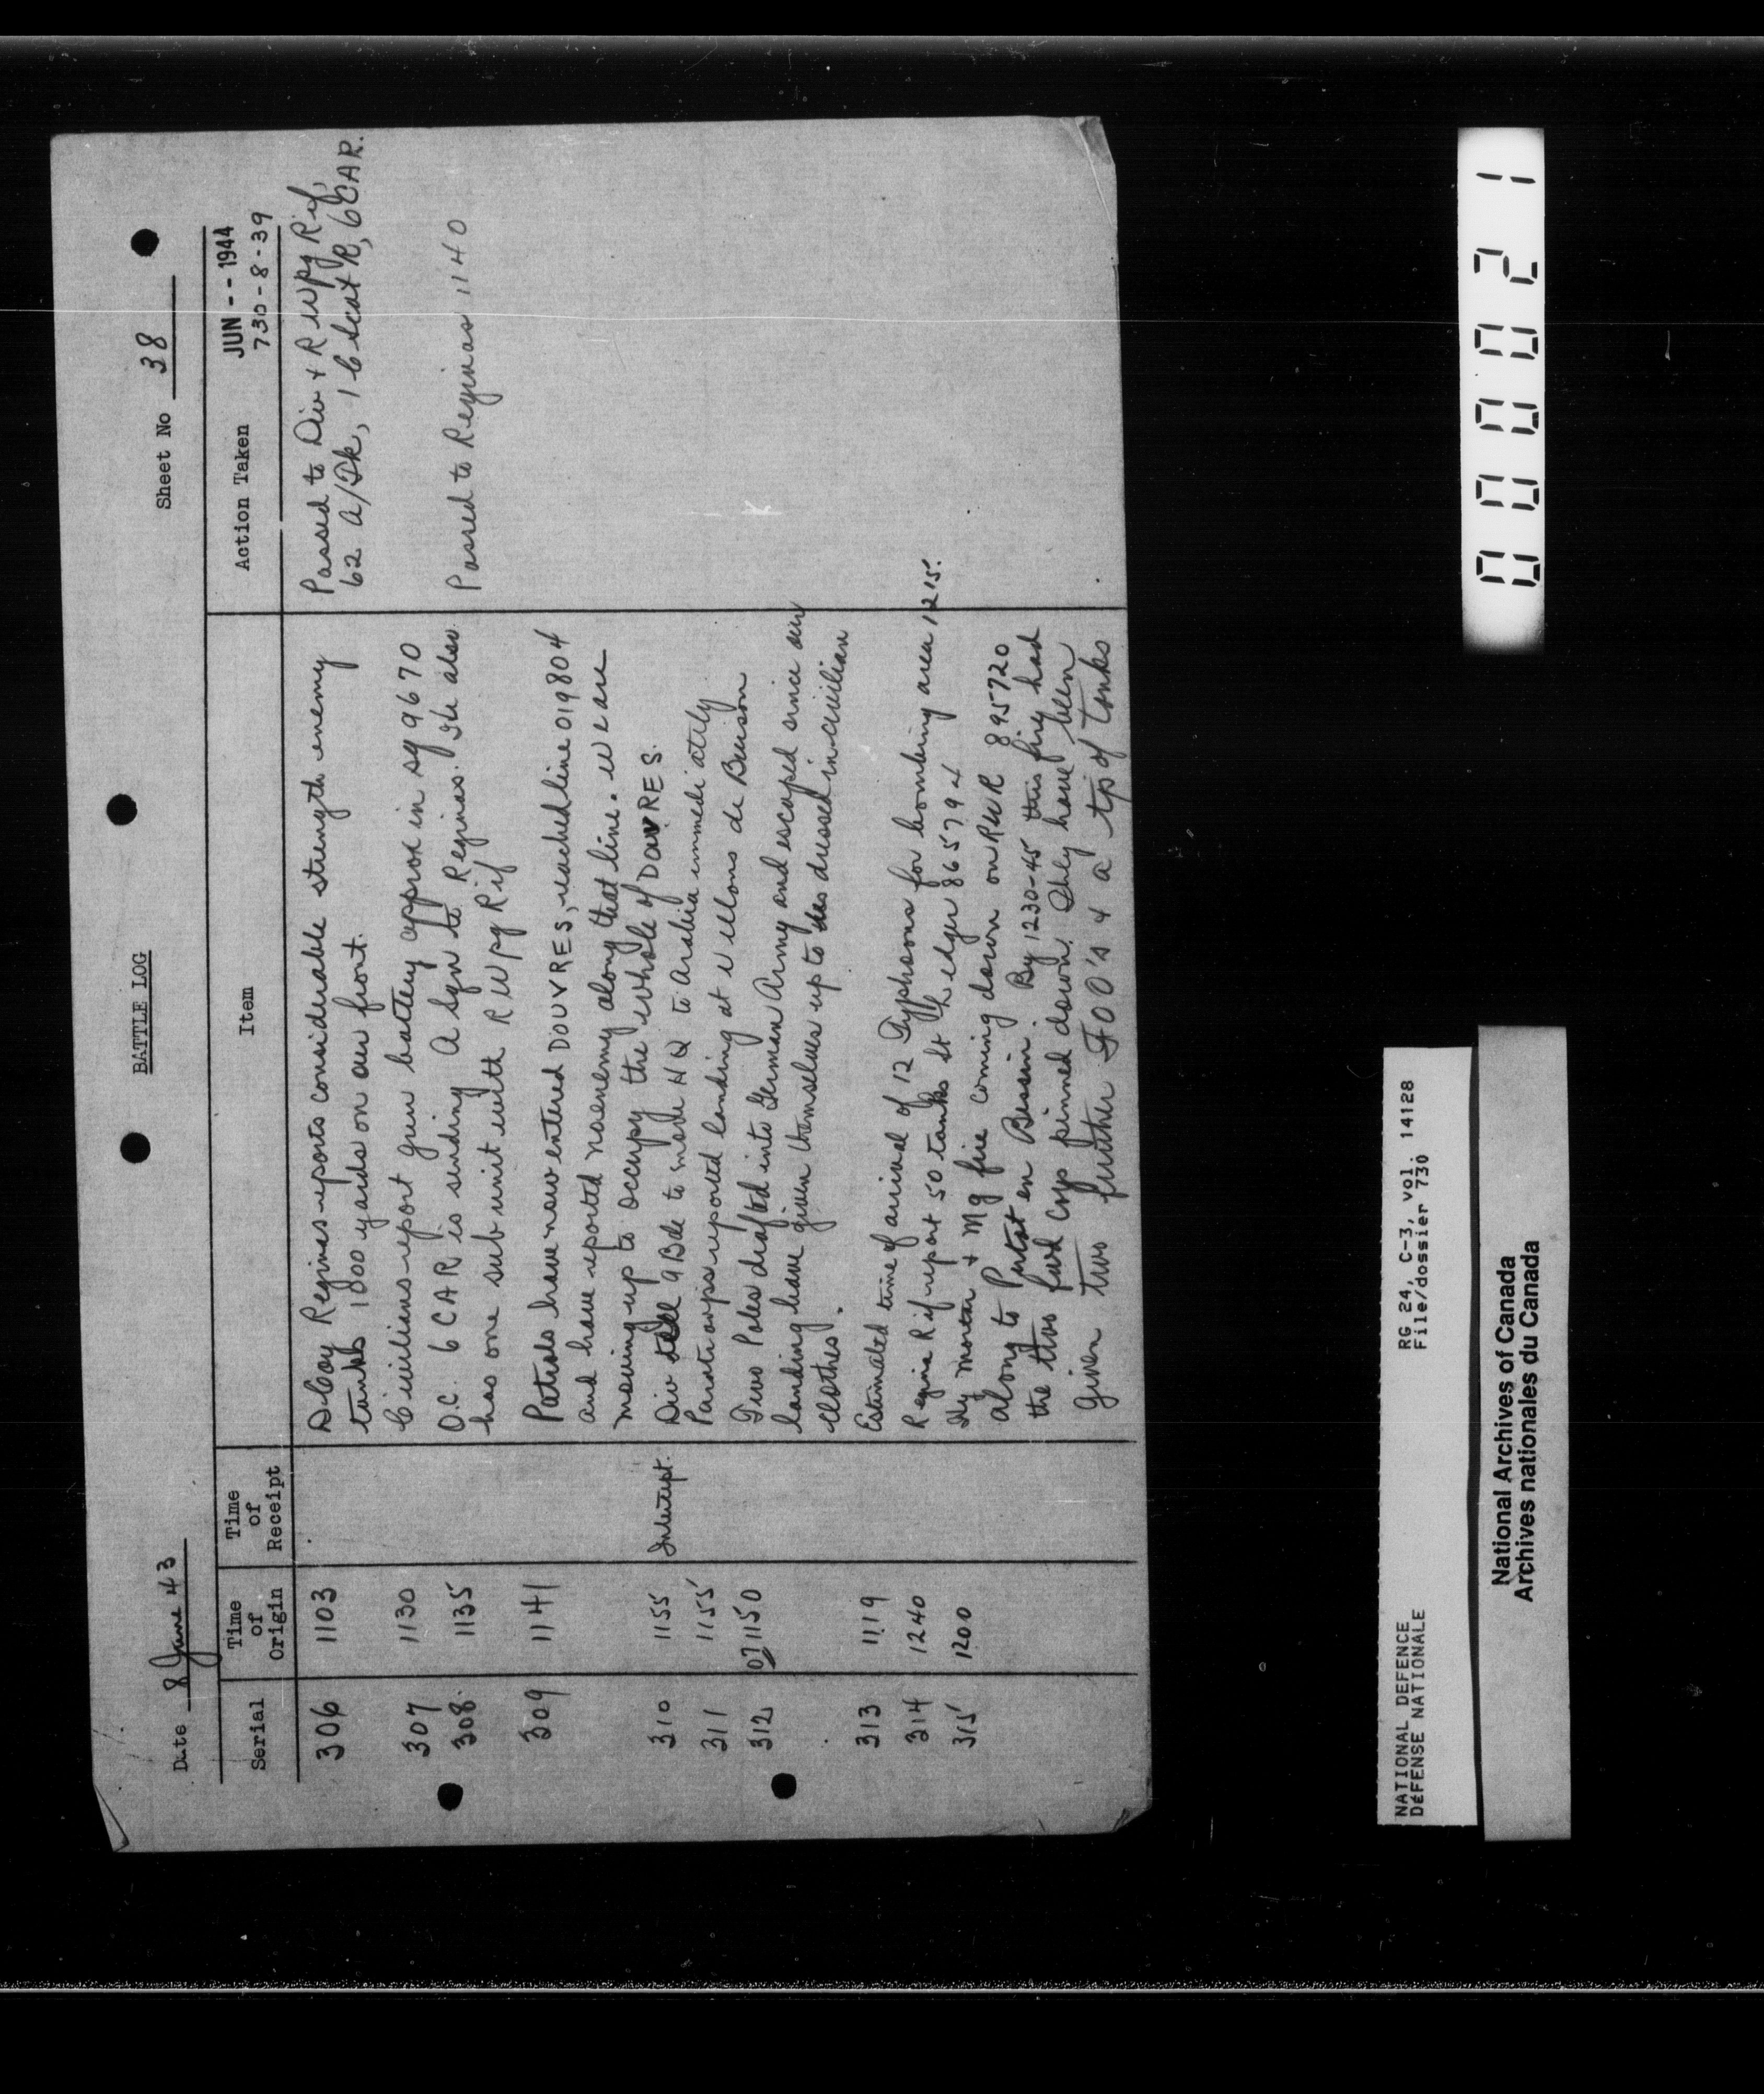 BATTLE LOG
Date 8 June 43
Sheet No 38
Serial
Time of Origin
Time of Receipt
Item
Action Taken
JUN -- 1944
730-8-39
306 1103 D Coy Reginas reports considerable strength enemy
tanks 1800 yards on our front.
Passed to Div + R Wpg Rif,
62 A/Tk, 1 C Scot R, 6 CAR.
307 1130 Civilians report gun battery approx in sq 9670
308 1135 O.C. 6 CAR is sending A Sqn to Reginas. He also
has one sub unit with R Wpg Rif
Passed to Reginas 1140
309 1141 Patrols have now entered DOUVRES, reached line 019804
and have reported no enemy along that line. We are
moving up to occupy the whole of DOUVRES.
310 1155 Intercept. Div tell 9 Bde to move HQ to Arabia immediately
311 1155 Paratroops reported landing at Ellons de Buisson
312 071150 Two Poles drafted into German Army and escaped since our
landing have given themselves up to us dressed in civilian
clothes.
313 1119 Estimated time of arrival of 12 Typhoons for bombing area 1215.
314 1240 Regina Rif report 50 tanks at edger 865794
315 1200 Hy mortar + Mg fire coming down on RWR 895720
along to Putot en Bessin. By 1230-45 this fire had
the two fwd Coys pinned down. They have been
given two further FOO's & a tp of tanks
NATIONAL DEFENCE
DÉFENSE NATIONALE
RG 24, C-3, vol. 14128
File/dossier 730
National Archives of Canada
Archives nationales du Canada
000021